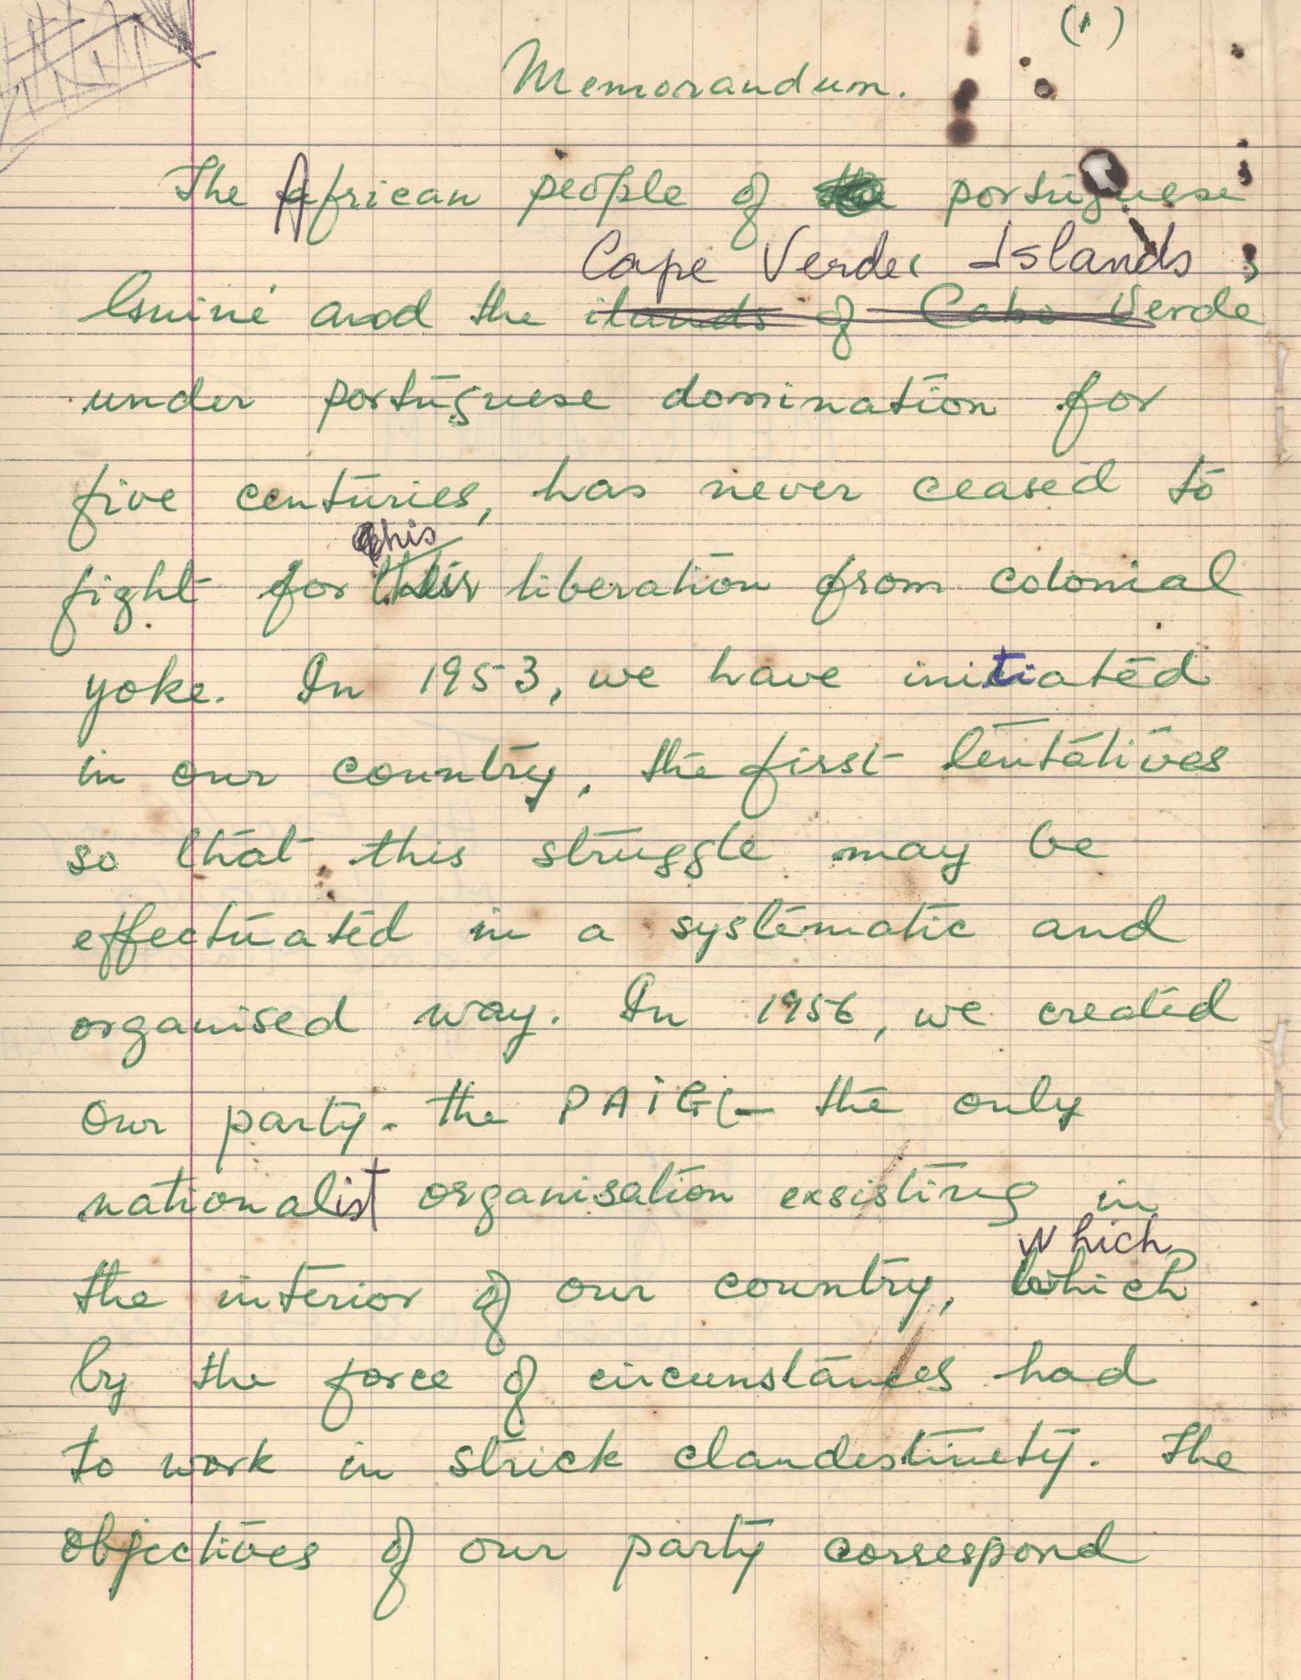 (1)
Memorandum.
The African people of portuguese
Cape Verde Islands,
Guiné and the ilands of Cabo Verde
under portuguese domination for
five centuries, has never ceased to
this
fight for liberation from colonial
yoke. In 1953, we have initiated
in our country, the first tentatives
so that this struggle may be
effectuated in a systematic and
organised way. In 1956, we created
our party - the PAIGC - the only
nationalist organisation exsisting in
which
the interior of our country, which
by the force of circunstances had
to work in strick clandestinety. The
objectives of our party correspond